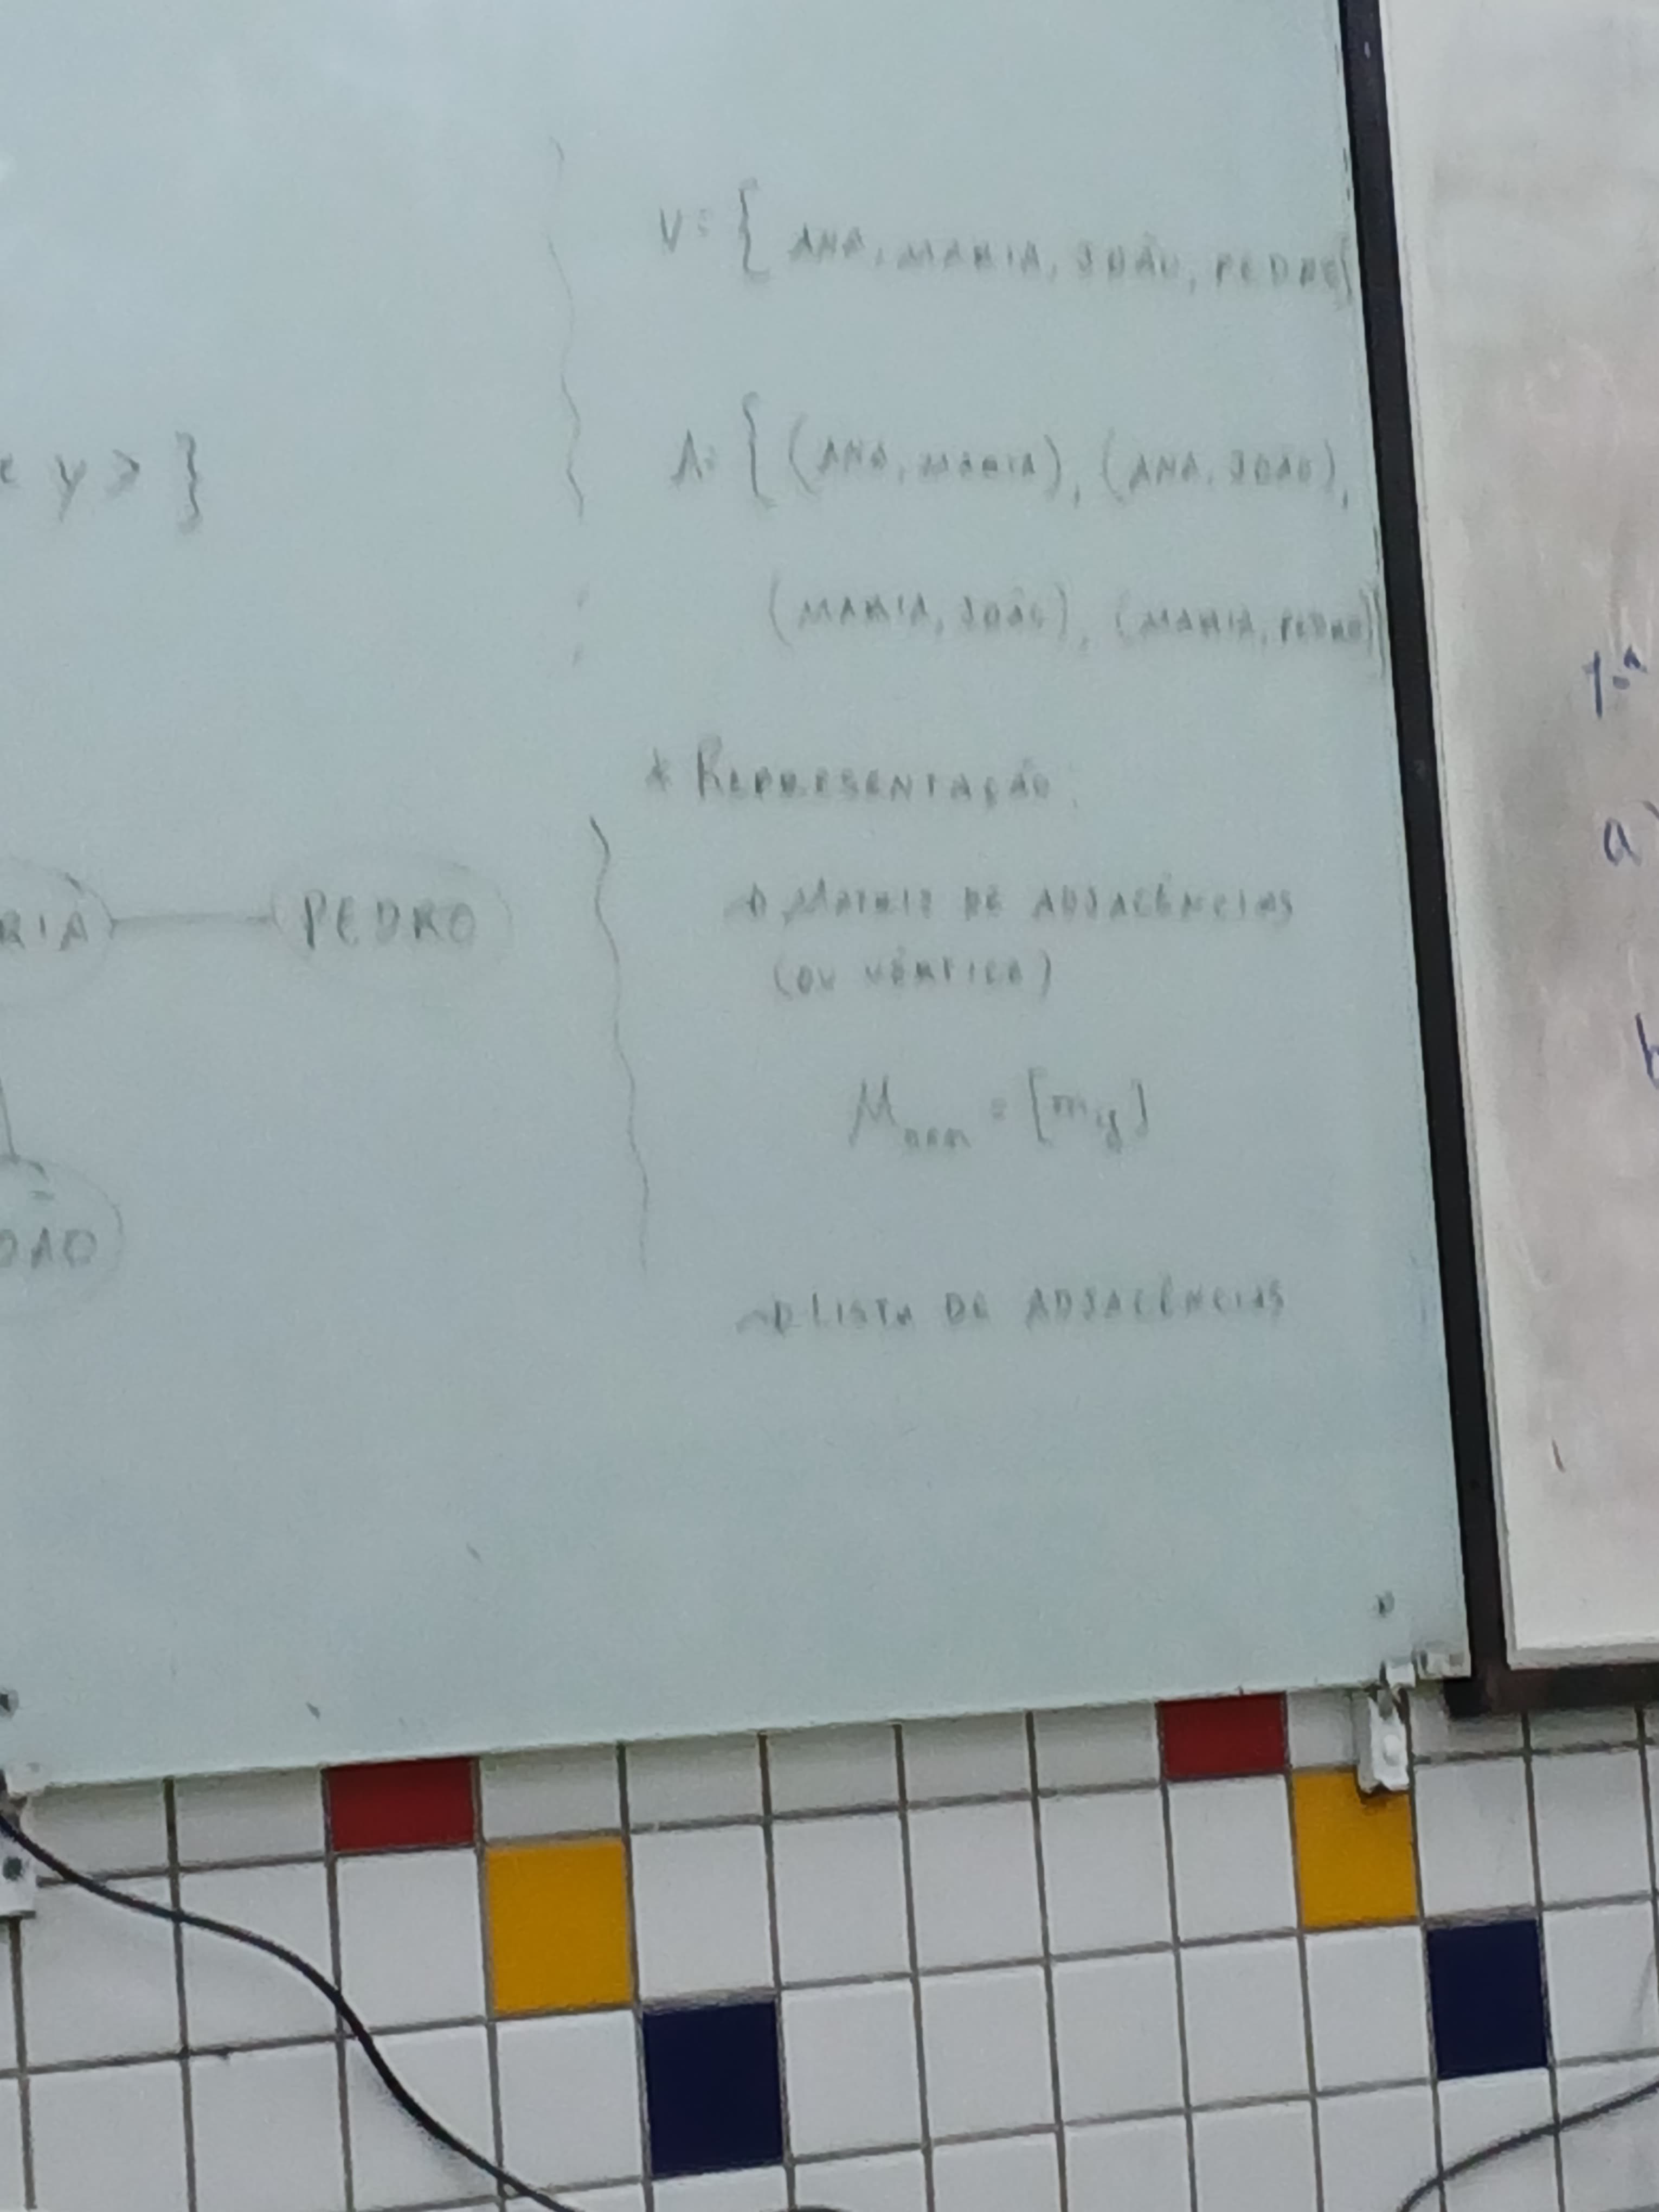 V = { ANA, MARIA, JOÃO, PEDRO}
A = { (ANA, MARIA), (ANA, JOÃO),
(MARIA, JOÃO), (MARIA, PEDRO)}
y > }
* REPRESENTAÇÃO:
→ MATRIZ DE ADJACÊNCIAS
(OU VÉRTICE)
RIA PEDRO
M nxn = [m ij]
OÃO
→ LISTA DE ADJACÊNCIAS
1.ª
a)
b